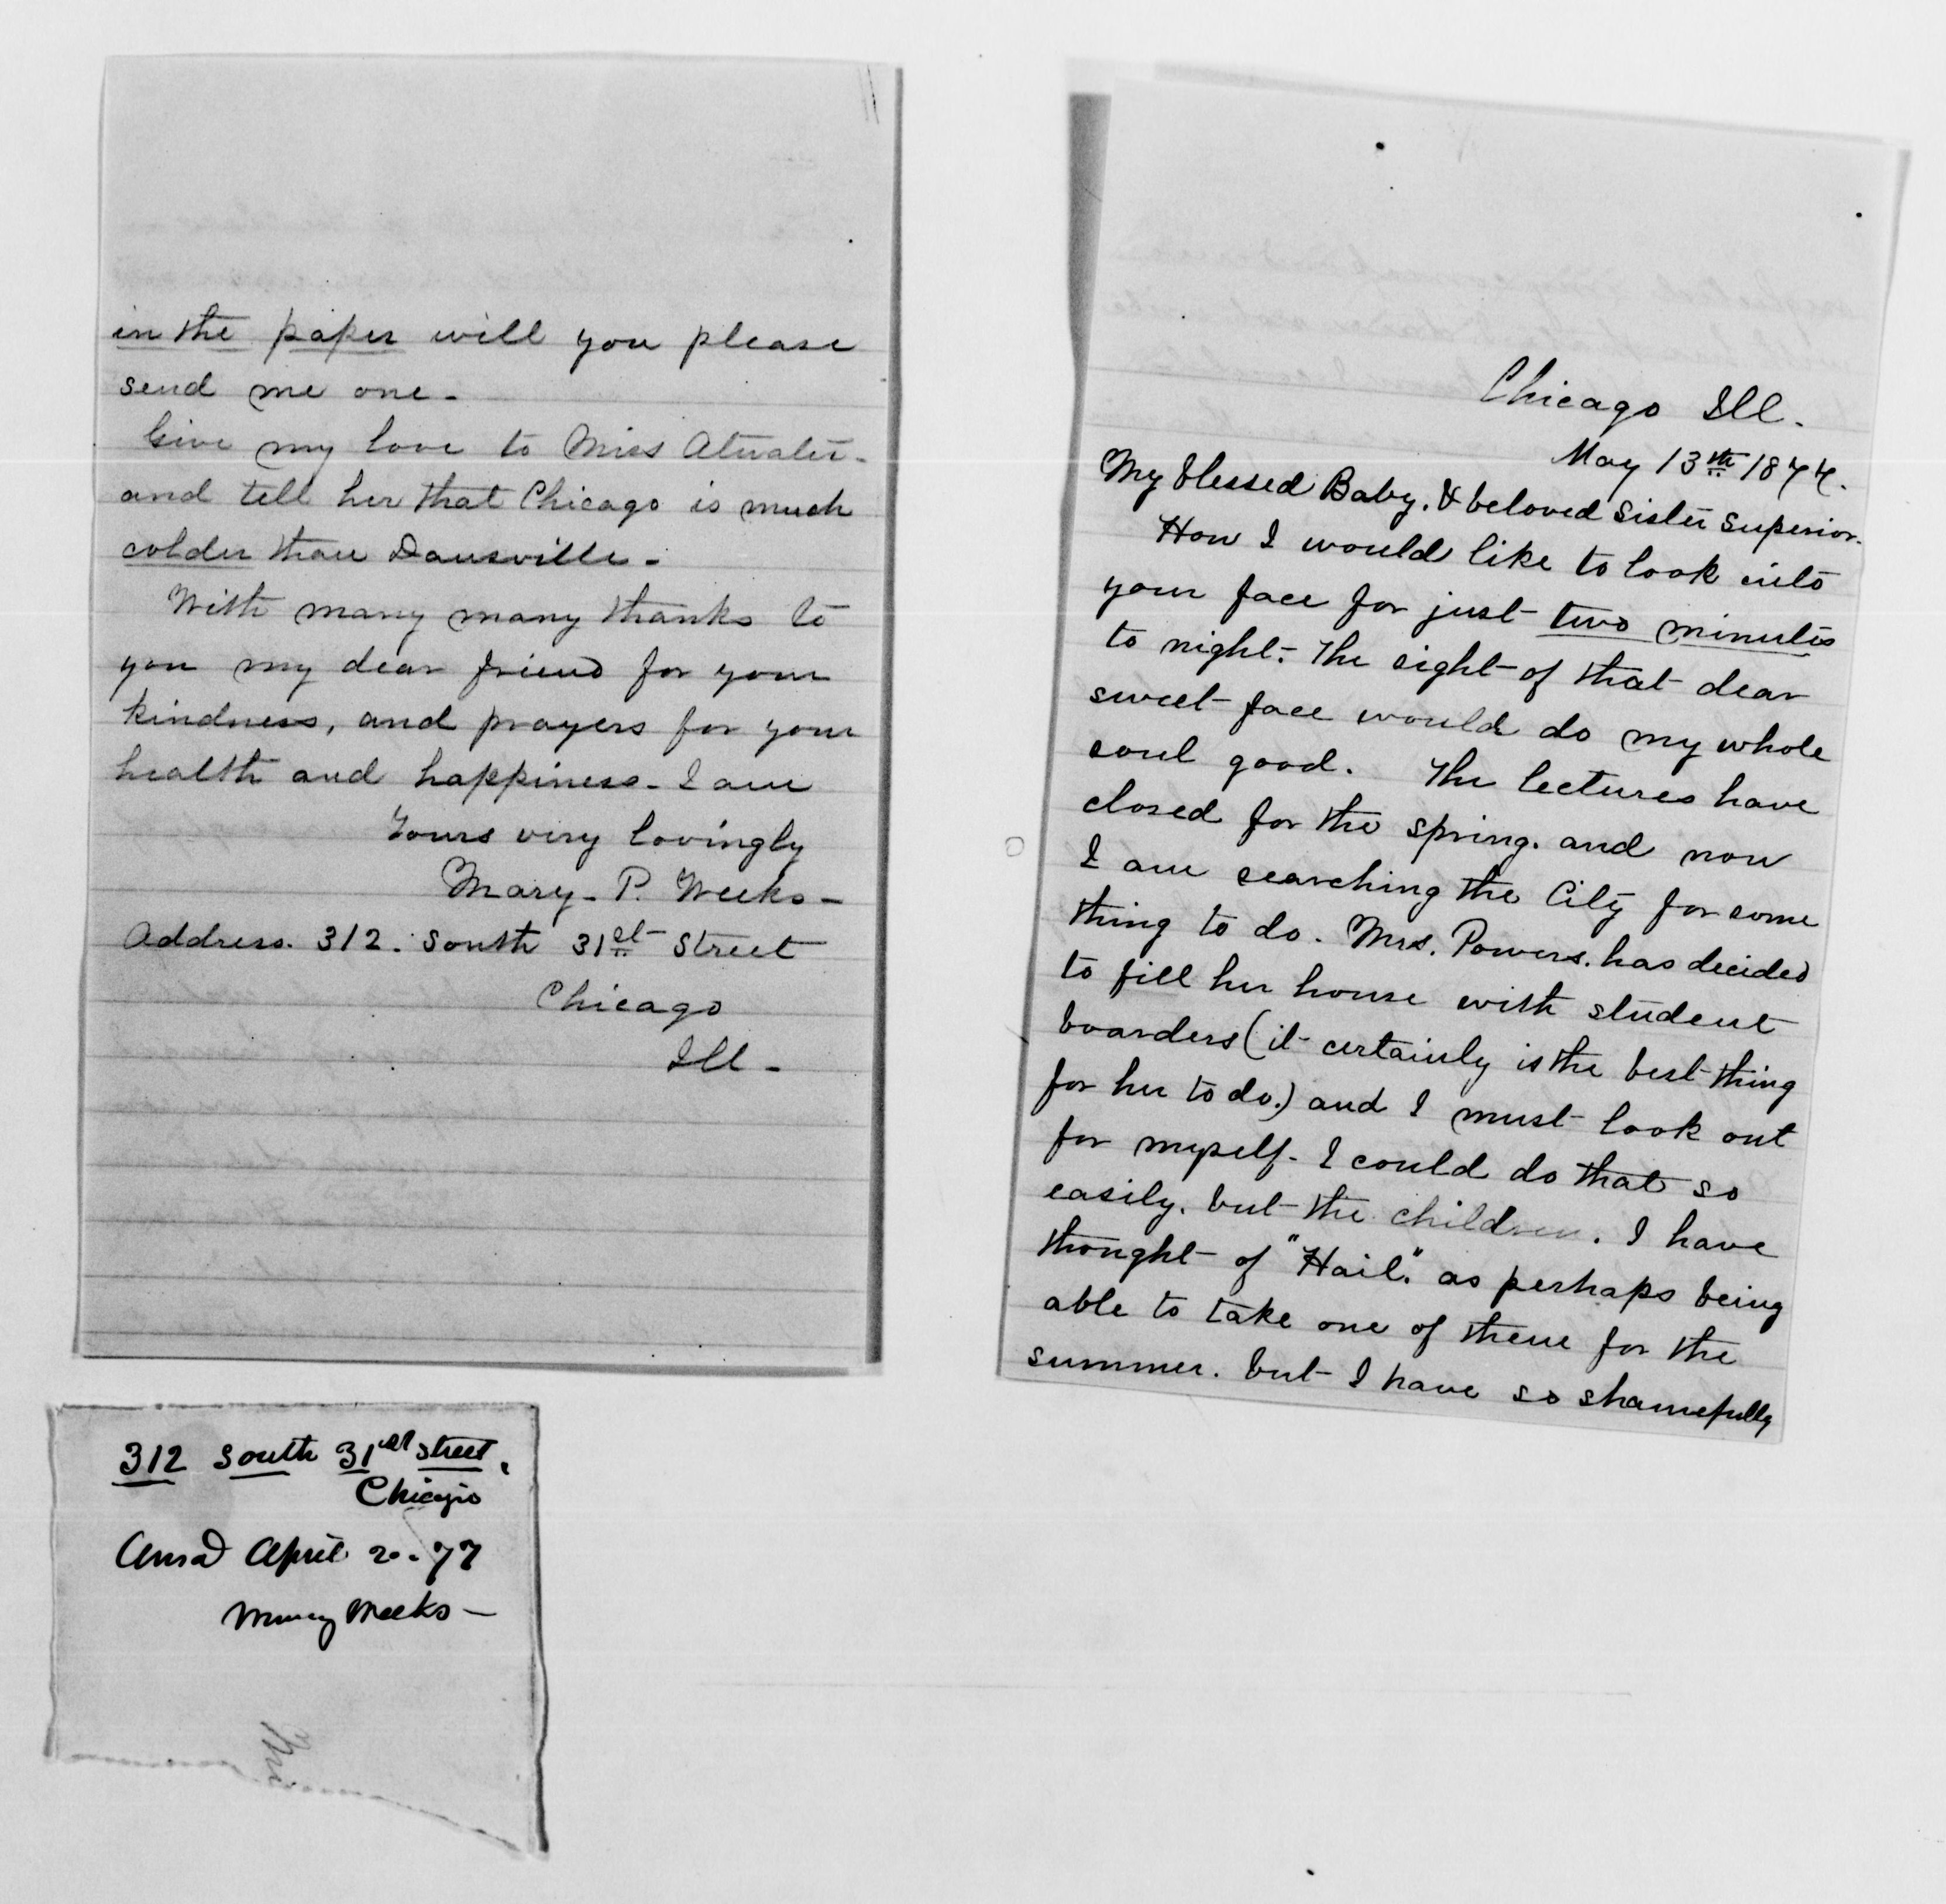 in the paper will you please
send me one -
Give my love to Miss Atwater -
and tell her that Chicago is much
colder than Dansville -
With many many thanks to
you my dear friend for your
kindness, and prayers for your
health and happiness - I am
Yours very lovingly
Mary - P. Weeks -
Address. 312. South 31st Street
Chicago
Ill -
312 South 31st street.
Chicago
Ansd April 20 - 77
Mary Weeks -
Chicago Ill.
May 13th 1877.
My blessed Baby. & beloved Sister Superior.
How I would like to look into
your face for just two minutes
to night. The sight of that dear
sweet face would do my whole
soul good. The lectures have
closed for the spring. and now
I am searching the City for some
thing to do. Mrs. Powers. has decided
to fill her house with student
boarders (it certainly is the best thing
for her to do.) and I must look out
for myself - I could do that so
easily. but the children. I have
thought of "Hail." as perhaps being
able to take one of them for the
summer. but I have so shamefully